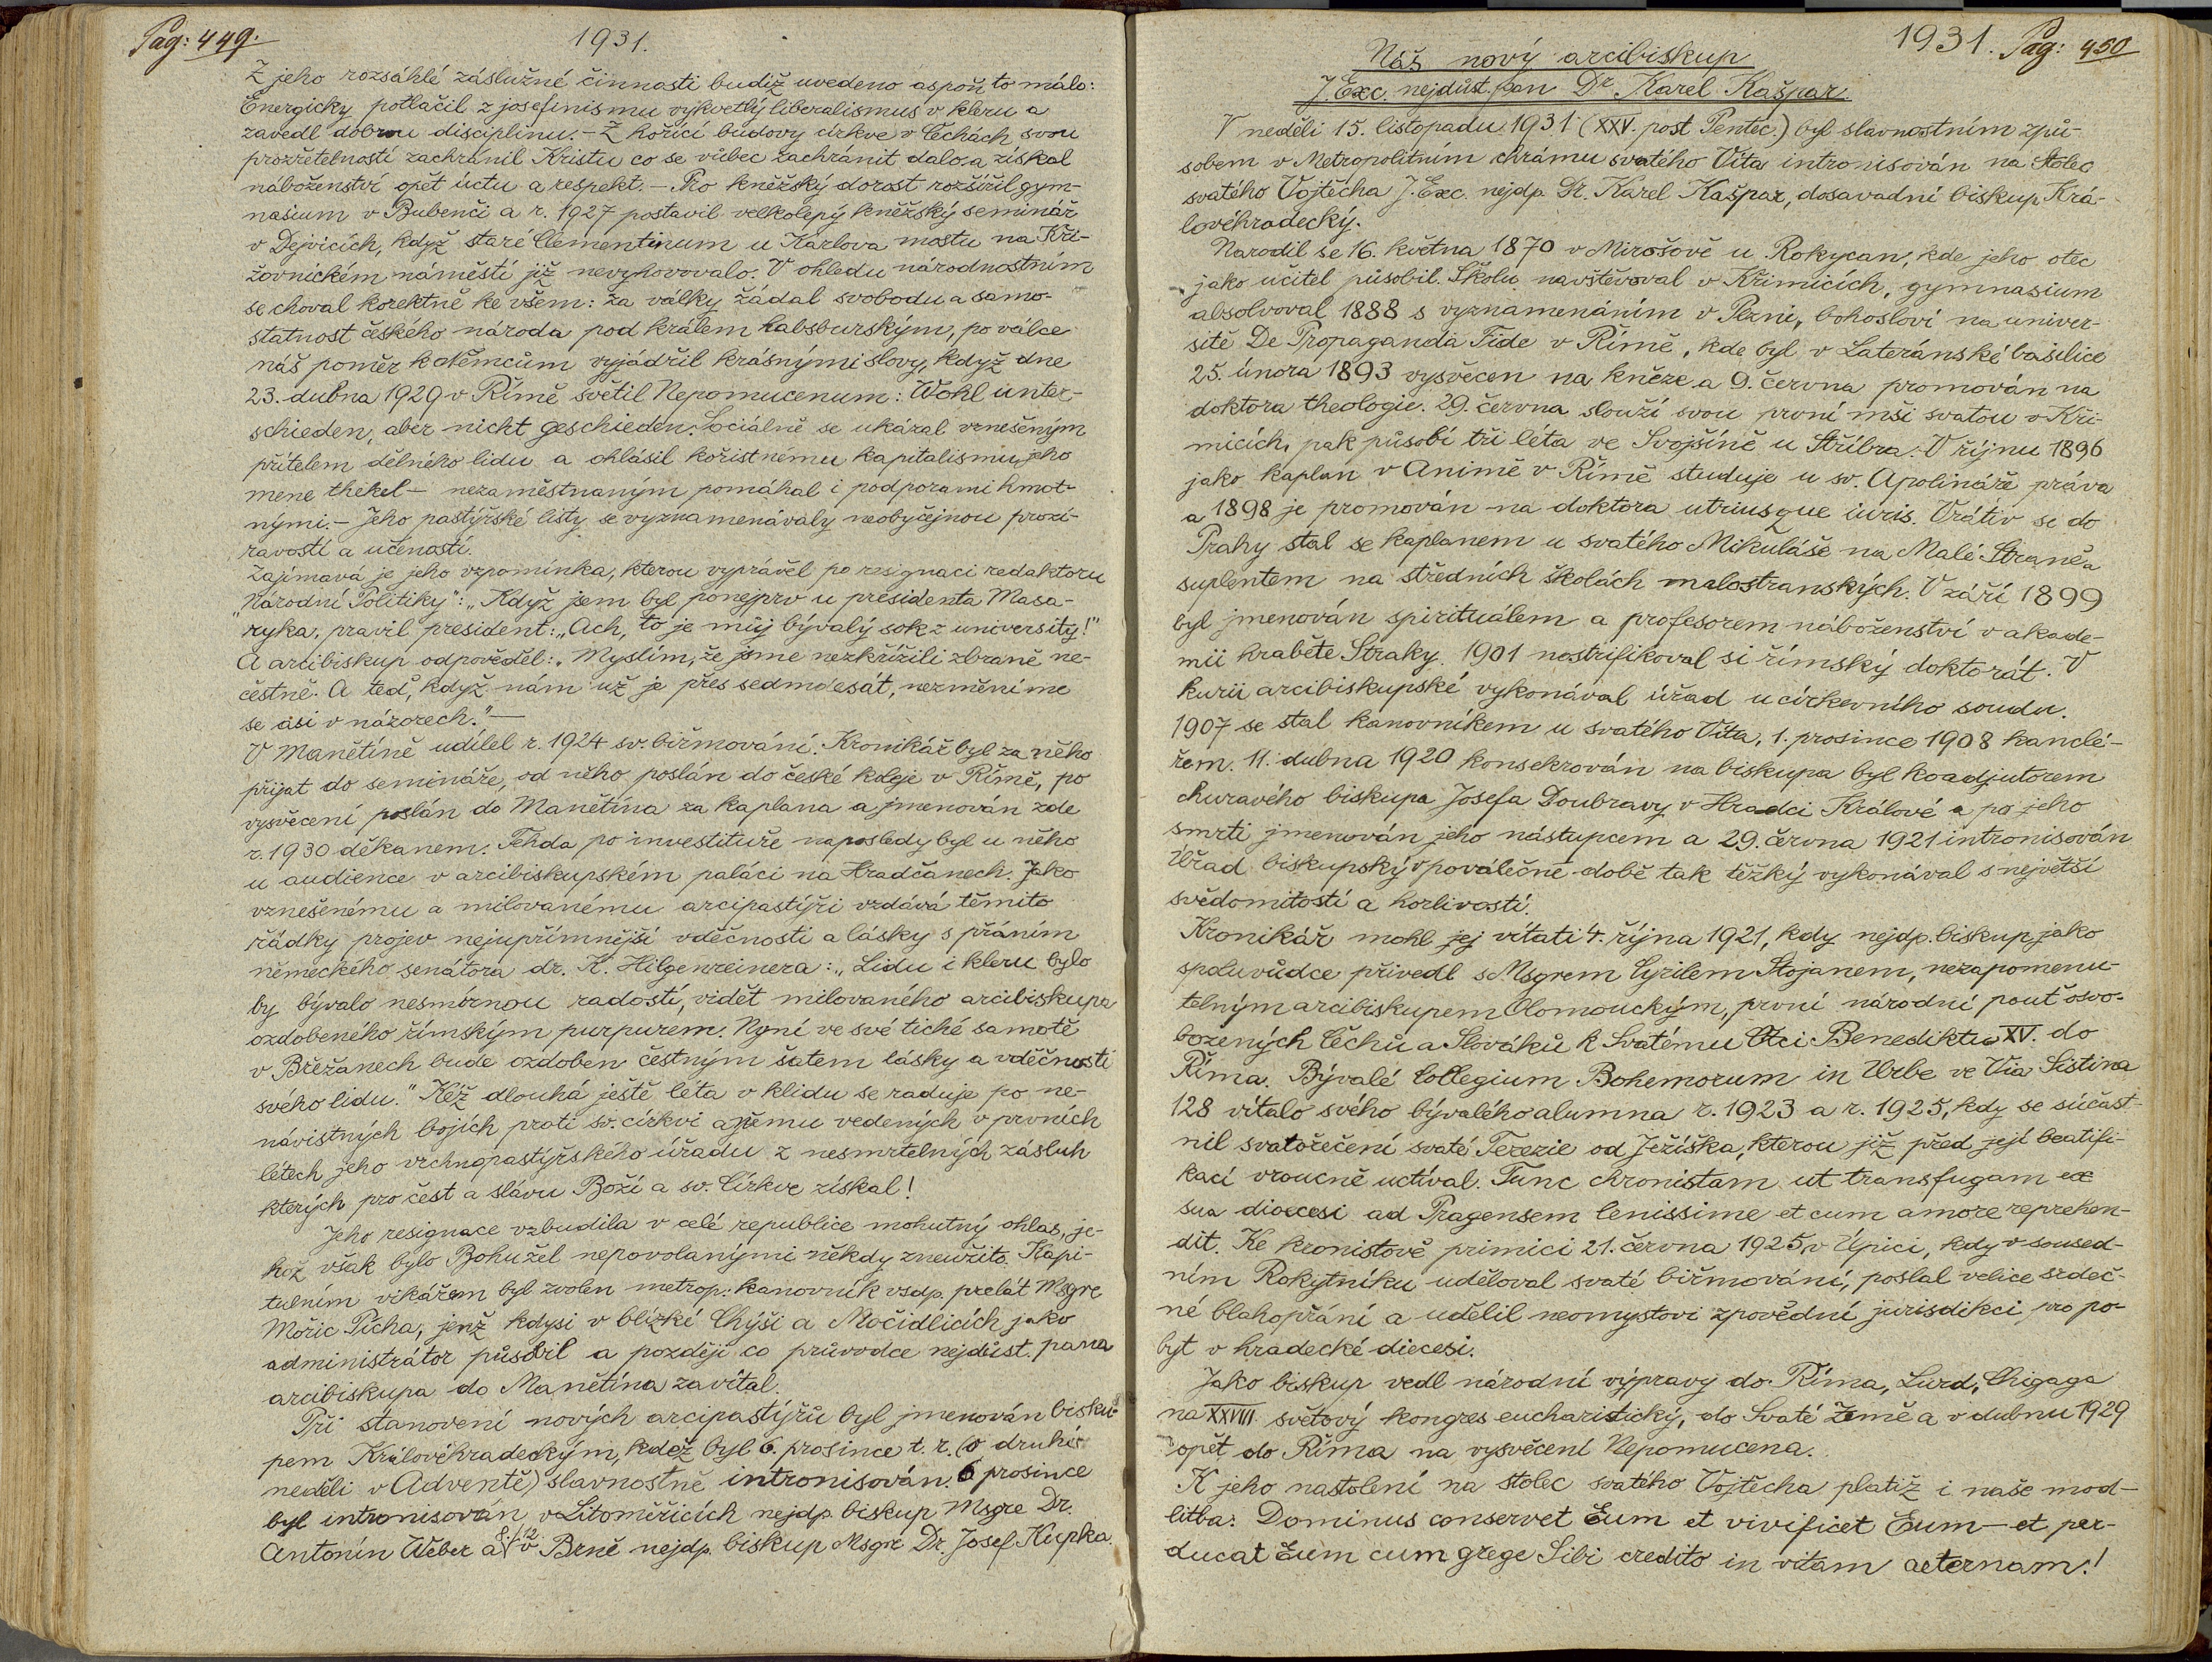 Pag: 449.
1931.
Z jeho rozsáhlé záslužné činnosti budiž uvedeno aspoň to málo:
Energicky potlačil z josefinismu vykvetlý liberalismus v kleru a
zavedl dobrou disciplinu. – Z hořící budovy církve v Čechách svou
prozřetelností zachránil Kristu co se vůbec zachránit dalo a získal
náboženství opět úctu a respekt. – Pro kněžský dorost rozšířil gym-
nasium v Bubenči a r. 1927 postavil velkolepý kněžský seminář
v Dejvicích, když staré Clementinum u Karlova mostu na Kři-
žovnickém náměstí již nevyhovovalo. V ohledu národnostním
se choval korektně ke všem: za války žádal svobodu a samo-
statnost českého národa pod králem habsburským, po válce
náš poměr k Němcům vyjádřil krásnými slovy, když dne
23. dubna 1929 v Římě světil Nepomucenum: Wohl unter-
schieden, aber nicht geschieden. Sociálně se ukázal vznešeným
přítelem dělného lidu a ohlásil kořistnému kapitalismu jeho
mene thekel – nezaměstnaným pomáhal i podporami hmot-
nými. – Jeho pastýřské listy se vyznamenávaly neobyčejnou prozí-
ravostí a učeností.
Zajímavá je jeho vzpomínka, kterou vyprávěl po resignaci redaktoru
"Národní Politiky": „Když jsem byl ponejprv u presidenta Masa-
ryka, pravil president: „Ach, to je můj bývalý sok z university!"
A arcibiskup odpověděl: „Myslím, že jsme nezkřížili zbraně ne-
čestně. A teď, když nám už je přes sedmdesát, nezměníme
se asi v názorech." –
V Manětíně udílel r. 1924 sv. biřmování. Kronikář byl za něho
přijat do semináře, od něho poslán do české koleje v Římě, po
vysvěcení poslán do Manětína za kaplana a jmenován zde
r. 1930 děkanem. Tehda po investituře naposledy byl u něho
u audience v arcibiskupském paláci na Hradčanech. Jako
vznešenému a milovanému arcipastýři vzdává těmito
řádky projev nejupřímnější vděčnosti a lásky s přáním
německého senátora dr. K. Hilgenreinera: „Lidu i kleru bylo
by bývalo nesmírnou radostí, vidět milovaného arcibiskupa
ozdobeného římským purpurem. Nyní ve své tiché samotě
v Břežanech bude ozdoben čestným šatem lásky a vděčnosti
svého lidu." Kéž dlouhá ještě léta v klidu se raduje po ne-
návistných bojích proti sv. církvi a jemu vedených v prvních
létech jeho vrchnopastýřského úřadu z nesmrtelných zásluh
kterých pro čest a slávu Boží a sv. Církve získal!
Jeho resignace vzbudila v celé republice mohutný ohlas, je-
hož však bylo Bohužel nepovolanými někdy zneužito. Kapi-
tulním vikářem byl zvolen metrop. kanovník vsdp. prelát Msgre
Mořic Pícha, jenž kdysi v blízké Chýši a Močidlicích jako
administrátor působil a později co průvodce nejdůst. pana
arcibiskupa do Manětína zavítal.
Při stanovení nových arcipastýřů byl jmenován bisku-
pem Královéhradeckým, kdež byl 6. prosince t. r. (v druhé
neděli v Adventě) slavnostně intronisován. 6 prosince
byl intronisován v Litoměřicích nejdp. biskup Msgre Dr.
Antonín Weber a 8./12. v Brně nejdp. biskup Msgre Dr. Josef Kupka.
1931. Pag: 450
Náš nový arcibiskup
J. Exc. nejdůst. pan Dr. Karel Kašpar.
V neděli 15. listopadu 1931 (XXV. post Pentec.) byl slavnostním způ-
sobem v Metropolitním chrámu svatého Víta intronisován na Stolec
svatého Vojtěcha J. Exc. nejdp. Dr. Karel Kašpar, dosavadní biskup Krá-
lovéhradecký.
Narodil se 16. května 1870 v Mirošově u Rokycan, kde jeho otec
jako učitel působil. Školu navštěvoval v Křimicích, gymnasium
absolvoval 1888 s vyznamenáním v Plzni, bohosloví na univer-
sitě De Propaganda Fide v Římě, kde byl v Lateránské basilice
25. února 1893 vysvěcen na kněze a 9. června promován na
doktora theologie. 29. června slouží svou první mši svatou v Kři-
micích, pak působí tři léta ve Svojšíně u Stříbra. V říjnu 1896
jako kaplan v Animě v Římě studuje u sv. Apolináře práva
a 1898 je promován na doktora utriusque iuris. Vrátiv se do
Prahy stal se kaplanem u svatého Mikuláše na Malé Straně a
suplentem na středních školách malostranských. V září 1899
byl jmenován spirituálem a profesorem náboženství v akade-
mii hraběte Straky. 1901 nostrifikoval si římský doktorát. V
kurii arcibiskupské vykonával úřad u církevního soudu.
1907 se stal kanovníkem u svatého Víta, 1. prosince 1908 kanclé-
řem. 11. dubna 1920 konsekrován na biskupa byl koadjutorem
churavého biskupa Josefa Doubravy v Hradci Králové a po jeho
smrti jmenován jeho nástupcem a 29. června 1921 intronisován
Úřad biskupský v poválečné době tak těžký vykonával s největší
svědomitostí a horlivostí.
Kronikář mohl jej vítati 4. října 1921, kdy nejdp. biskup jako
spoluvůdce přivedl s Msgrem Cyrilem Stojanem, nezapomenu-
telným arcibiskupem Olomouckým, první národní pouť osvo-
bozených Čechů a Slováků k Svatému Otci Benediktu XV. do
Říma. Bývalé Collegium Bohemorum in Urbe ve Via Sistina
128 vítalo svého bývalého alumna r. 1923 a r. 1925, kdy se súčast-
nil svatořečení svaté Terezie od Ježíška, kterou již před její beatifi-
kací vroucně uctíval. Tunc chronistam ut transfugam ex
sua dioecesi ad Pragensem lenissime et cum amore reprehen-
dit. Ke kronistově primici 21. června 1925 v Úpici, kdy v soused-
ním Rokytníku uděloval svaté biřmování, poslal velice srdeč-
né blahopřání a udělil neomystovi zpovědní jurisdikci pro po-
byt v hradecké diecesi.
Jako biskup vedl národní výpravy do Říma, Lurd, Chigaga
na XXVIII. světový kongres eucharistický, do Svaté Země a v dubnu 1929
opět do Říma na vysvěcení Nepomucena.
K jeho nastolení na stolec svatého Vojtěcha platiž i naše mod-
litba: Dominus conservet Eum et vivificet Eum – et per-
ducat Eum cum grege Sibi credito in vitam aeternam!